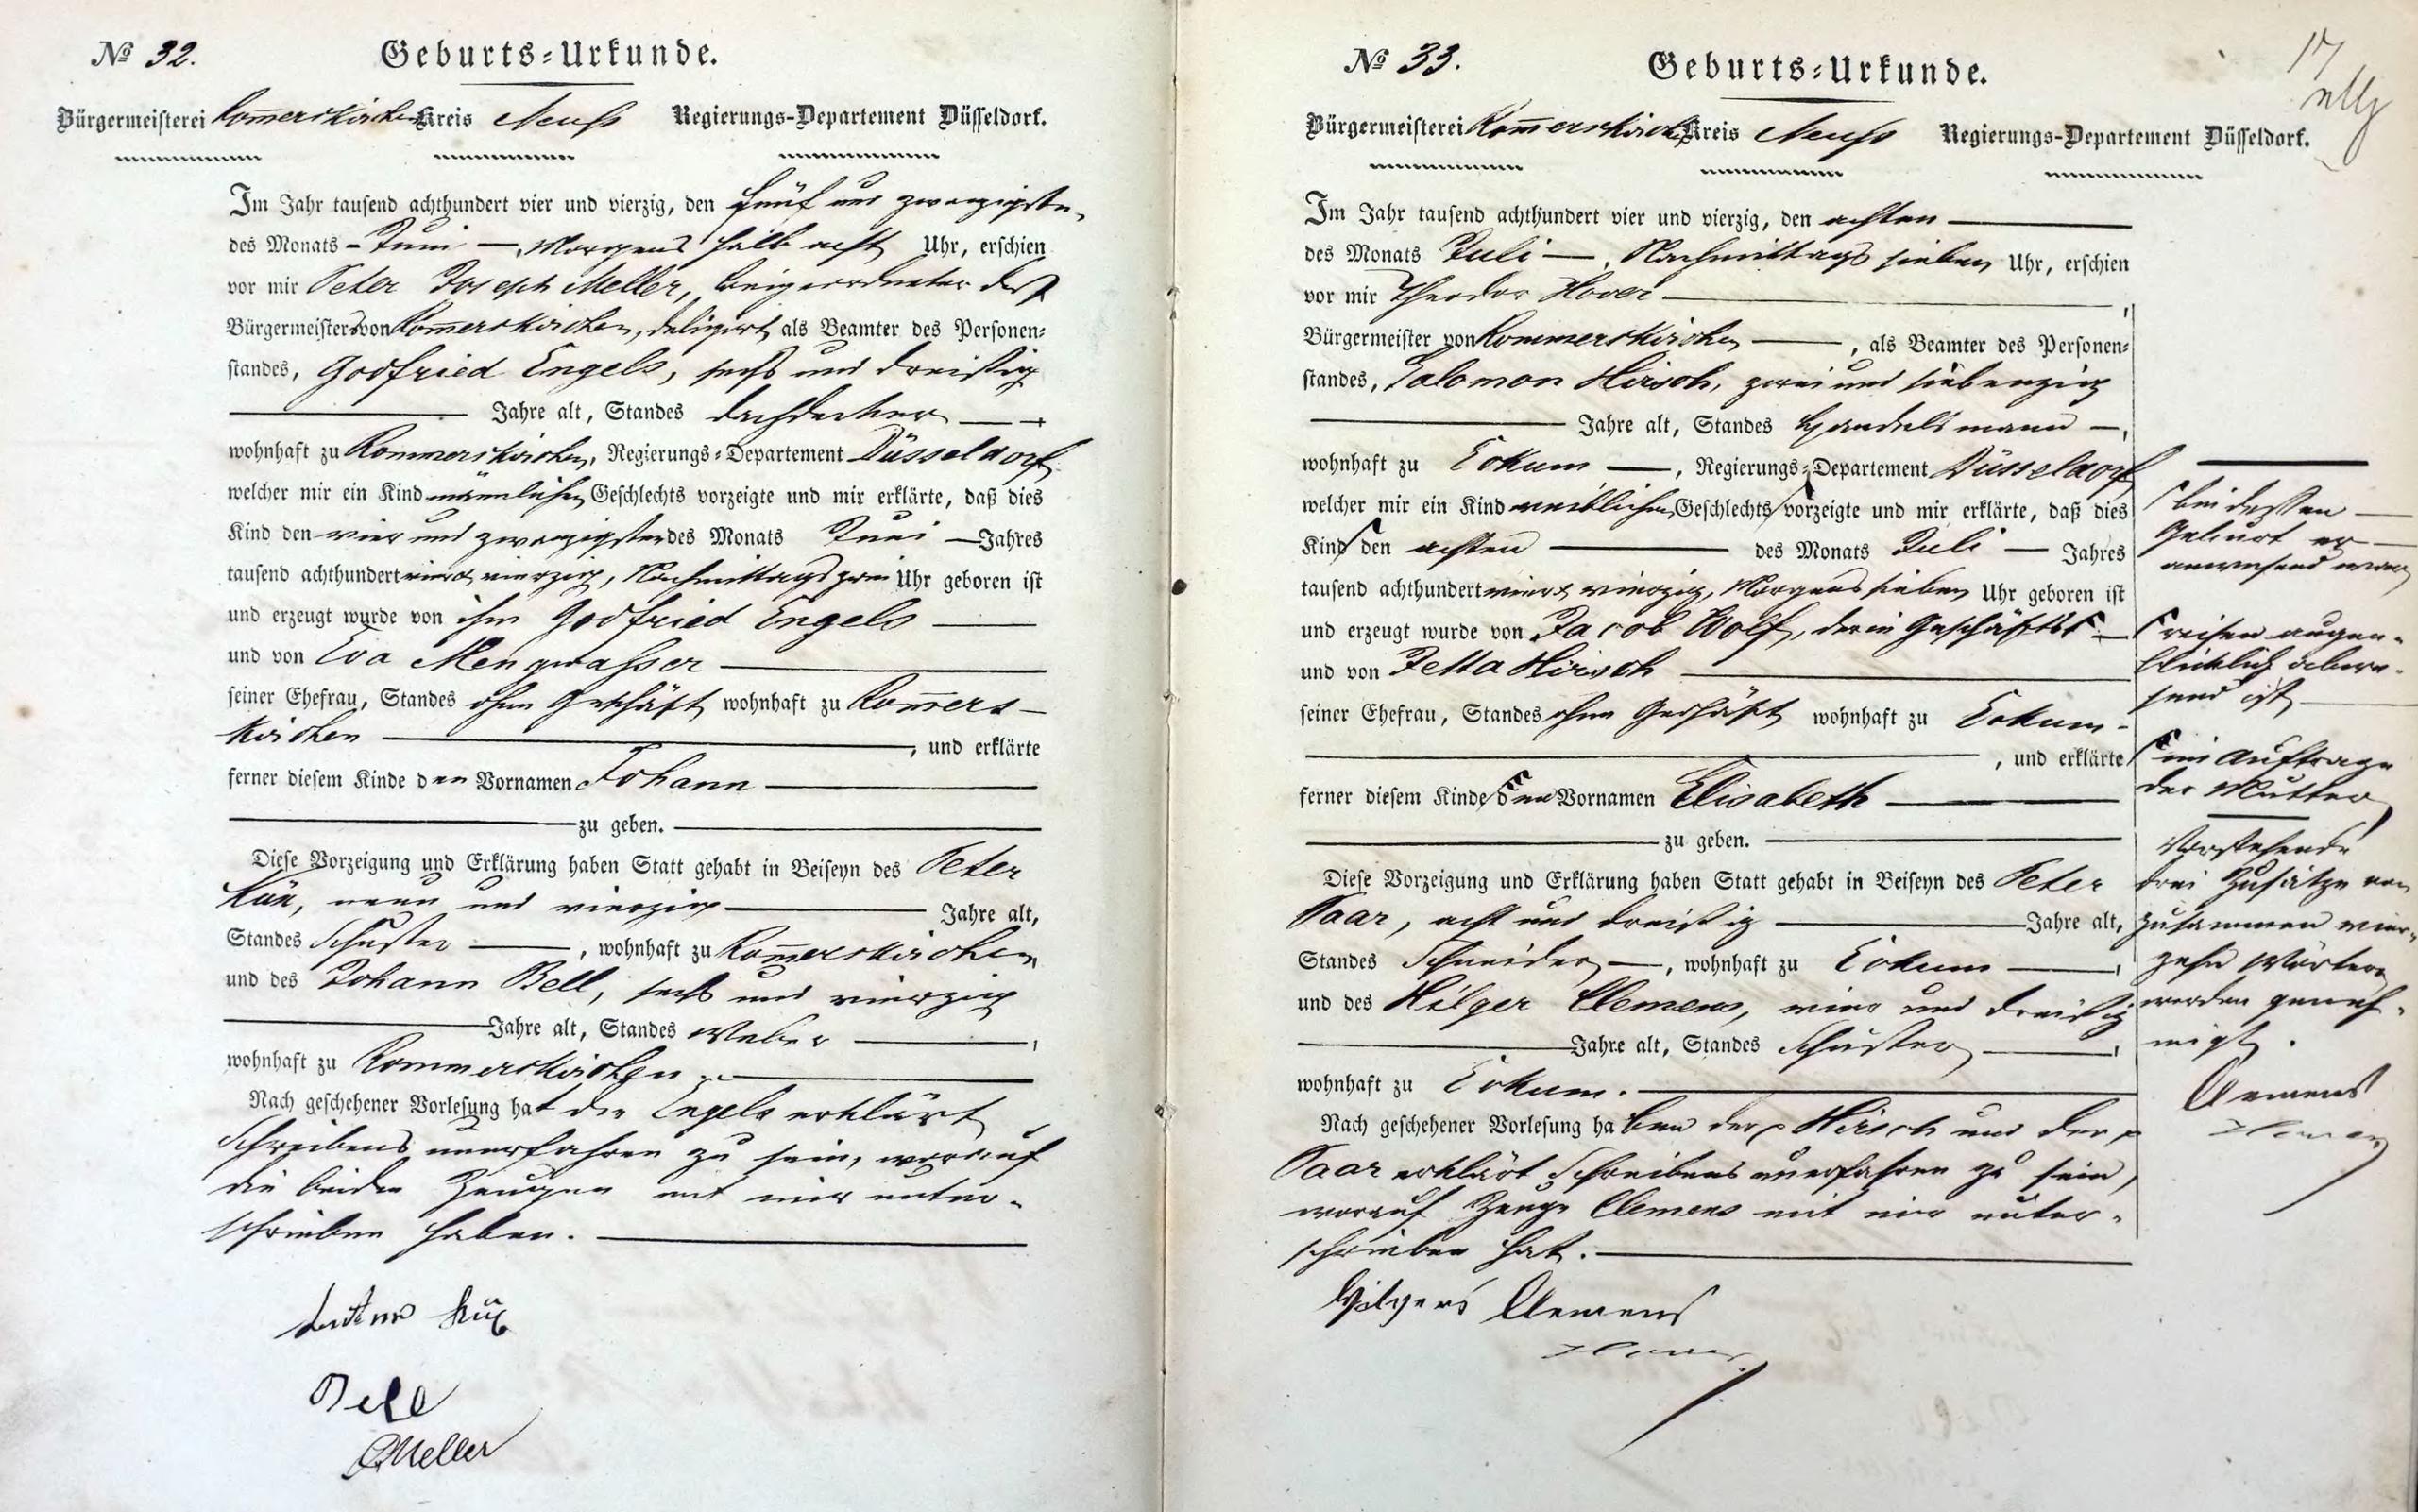 № 32.
Geburts-Urkunde.
Bürgermeisterei Rom̅erskirchen Kreis Neuss Regierungs-Departement Düsseldorf.
Im Jahr tausend achthundert vier und vierzig, den fünf und zwanzigsten
des Monats – Juni —, Morgens halb acht Uhr, erschien
vor mir Peter Joseph Meller, Beigeordneter des
Bürgermeisters von Rom̅erskirchen, deligirt als Beamter des Personen-
standes, Godfried Engels, sechs und dreißig
Jahre alt, Standes Dachdecker
wohnhaft zu Rommerskirchen, Regierungs-Departement Düsseldorf
welcher mir ein Kind männlichen Geschlechts vorzeigte und mir erklärte, daß dies
Kind den vier und zwanzigsten des Monats Juni — Jahres
tausend achthundert vier & vierzig, Nachmittags zwei Uhr geboren ist
und erzeugt wurde von ihm Godfried Engels
und von Eva Mengwasser
seiner Ehefrau, Standes ohne Geschäft wohnhaft zu Rom̅ers-
kirchen, und erklärte
ferner diesem Kinde den Vornamen Johann
zu geben.
Diese Vorzeigung und Erklärung haben Statt gehabt in Beiseyn des Peter
Küx, neun und vierzig Jahre alt,
Standes Schuster —, wohnhaft zu Rom̅erskirchen
und des Johann Bell, sechs und vierzig
Jahre alt, Standes Weber —,
wohnhaft zu Rommerskirchen.
Nach geschehener Vorlesung hat der Engels erklärt
Schreibens unerfahren zu sein, worauf
die beiden Zeugen mit mir unter-
schrieben haben.
Küx
Bell
Meller
№ 33.
Geburts-Urkunde.
17
Bürgermeisterei Rom̅erskirchen Kreis Neuss Regierungs-Departement Düsseldorf.
Im Jahr tausend achthundert vier und vierzig, den achten
des Monats Juli —, Nachmittags sieben Uhr, erschien
vor mir Theodor Hover
Bürgermeister von Rommerskirchen —, als Beamter des Personen-
standes, Salomon Hirsch, zwei und siebenzig
Jahre alt, Standes Handelsmann —,
wohnhaft zu Eckum —, Regierungs-Departement Düsseldorf
welcher mir ein Kind weiblichen Geschlechts vorzeigte und mir erklärte, daß dies
Kind den achten des Monats Juli — Jahres
tausend achthundert vier & vierzig, Morgens sieben Uhr geboren ist
und erzeugt wurde von Jacob Wolf, der in Geschäfts
und von Jetta Hirsch
seiner Ehefrau, Standes ohne Geschäft wohnhaft zu Eckum
, und erklärte
ferner diesem Kinde den Vornamen Elisabeth
zu geben.
Diese Vorzeigung und Erklärung haben Statt gehabt in Beiseyn des Peter
Saar, acht und dreißig Jahre alt,
Standes Schneider —, wohnhaft zu Eckum —,
und des Hilger Clemens, vier und dreißig
Jahre alt, Standes Schuster —,
wohnhaft zu Eckum.
Nach geschehener Vorlesung haben der Hirsch und der
Saar erklärt Schreibens unerfahren zu sein,
worauf Zeuge Clemens mit mir unter-
schrieben hat.
Hilgers Clemens
Hover
bei dessen
Geburt er
anwesend war
reisen augen-
blicklich abwe-
send ist
im Auftrage
der Mutter
Vorstehende
drei Zusätze von
zusammen vier-
zehn Wörtern
werden geneh-
migt.
Clemens
Hover